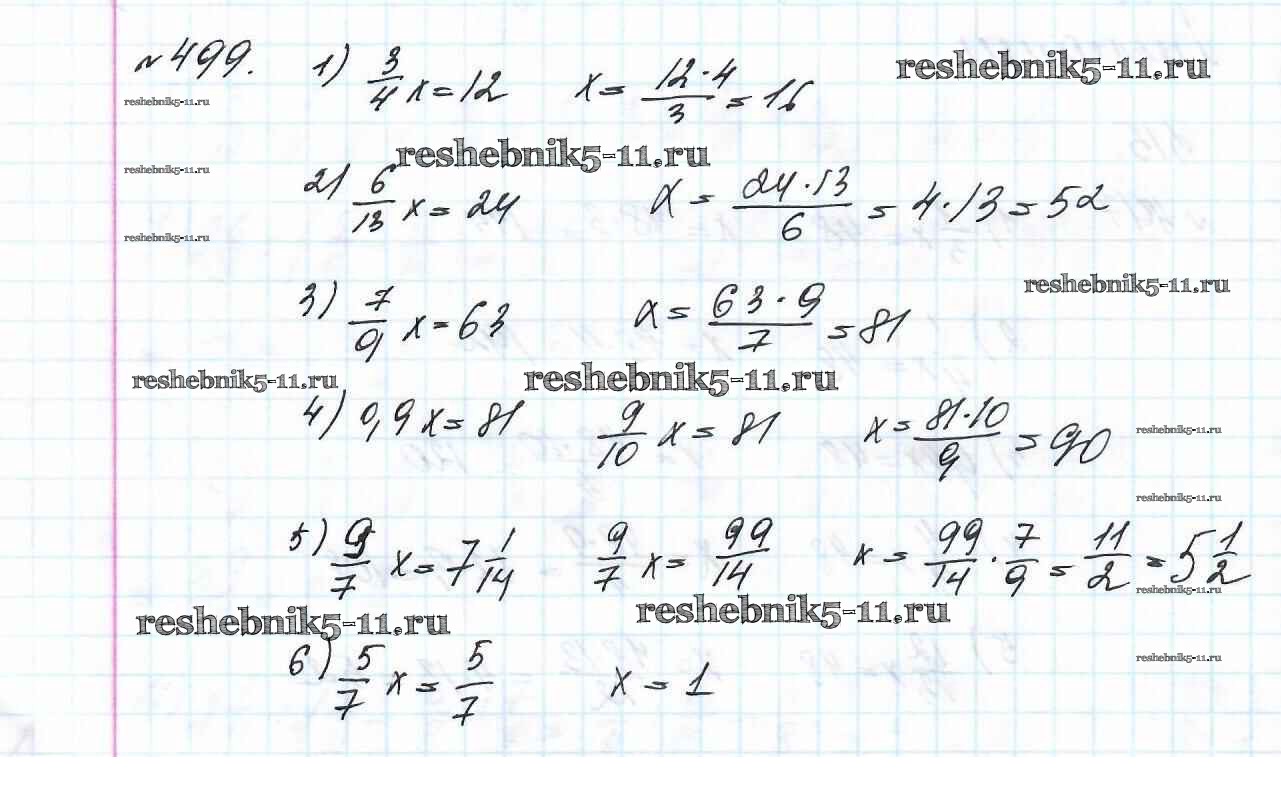 № 499. 1) 3/4 x = 12 x = 12·4/3 = 16 reshebnik5-11.ru
reshebnik5-11.ru
reshebnik5-11.ru
reshebnik5-11.ru
2) 6/13 x = 24 x = 24·13/6 = 4·13 = 52
reshebnik5-11.ru
reshebnik5-11.ru
3) 7/9 x = 63 x = 63·9/7 = 81
reshebnik5-11.ru reshebnik5-11.ru
4) 0,9 x = 81 9/10 x = 81 x = 81·10/9 = 90
reshebnik5-11.ru
reshebnik5-11.ru
5) 9/7 x = 7 1/14 9/7 x = 99/14 x = 99/14 · 7/9 = 11/2 = 5 1/2
reshebnik5-11.ru
reshebnik5-11.ru reshebnik5-11.ru
6) 5/7 x = 5/7 x = 1
reshebnik5-11.ru